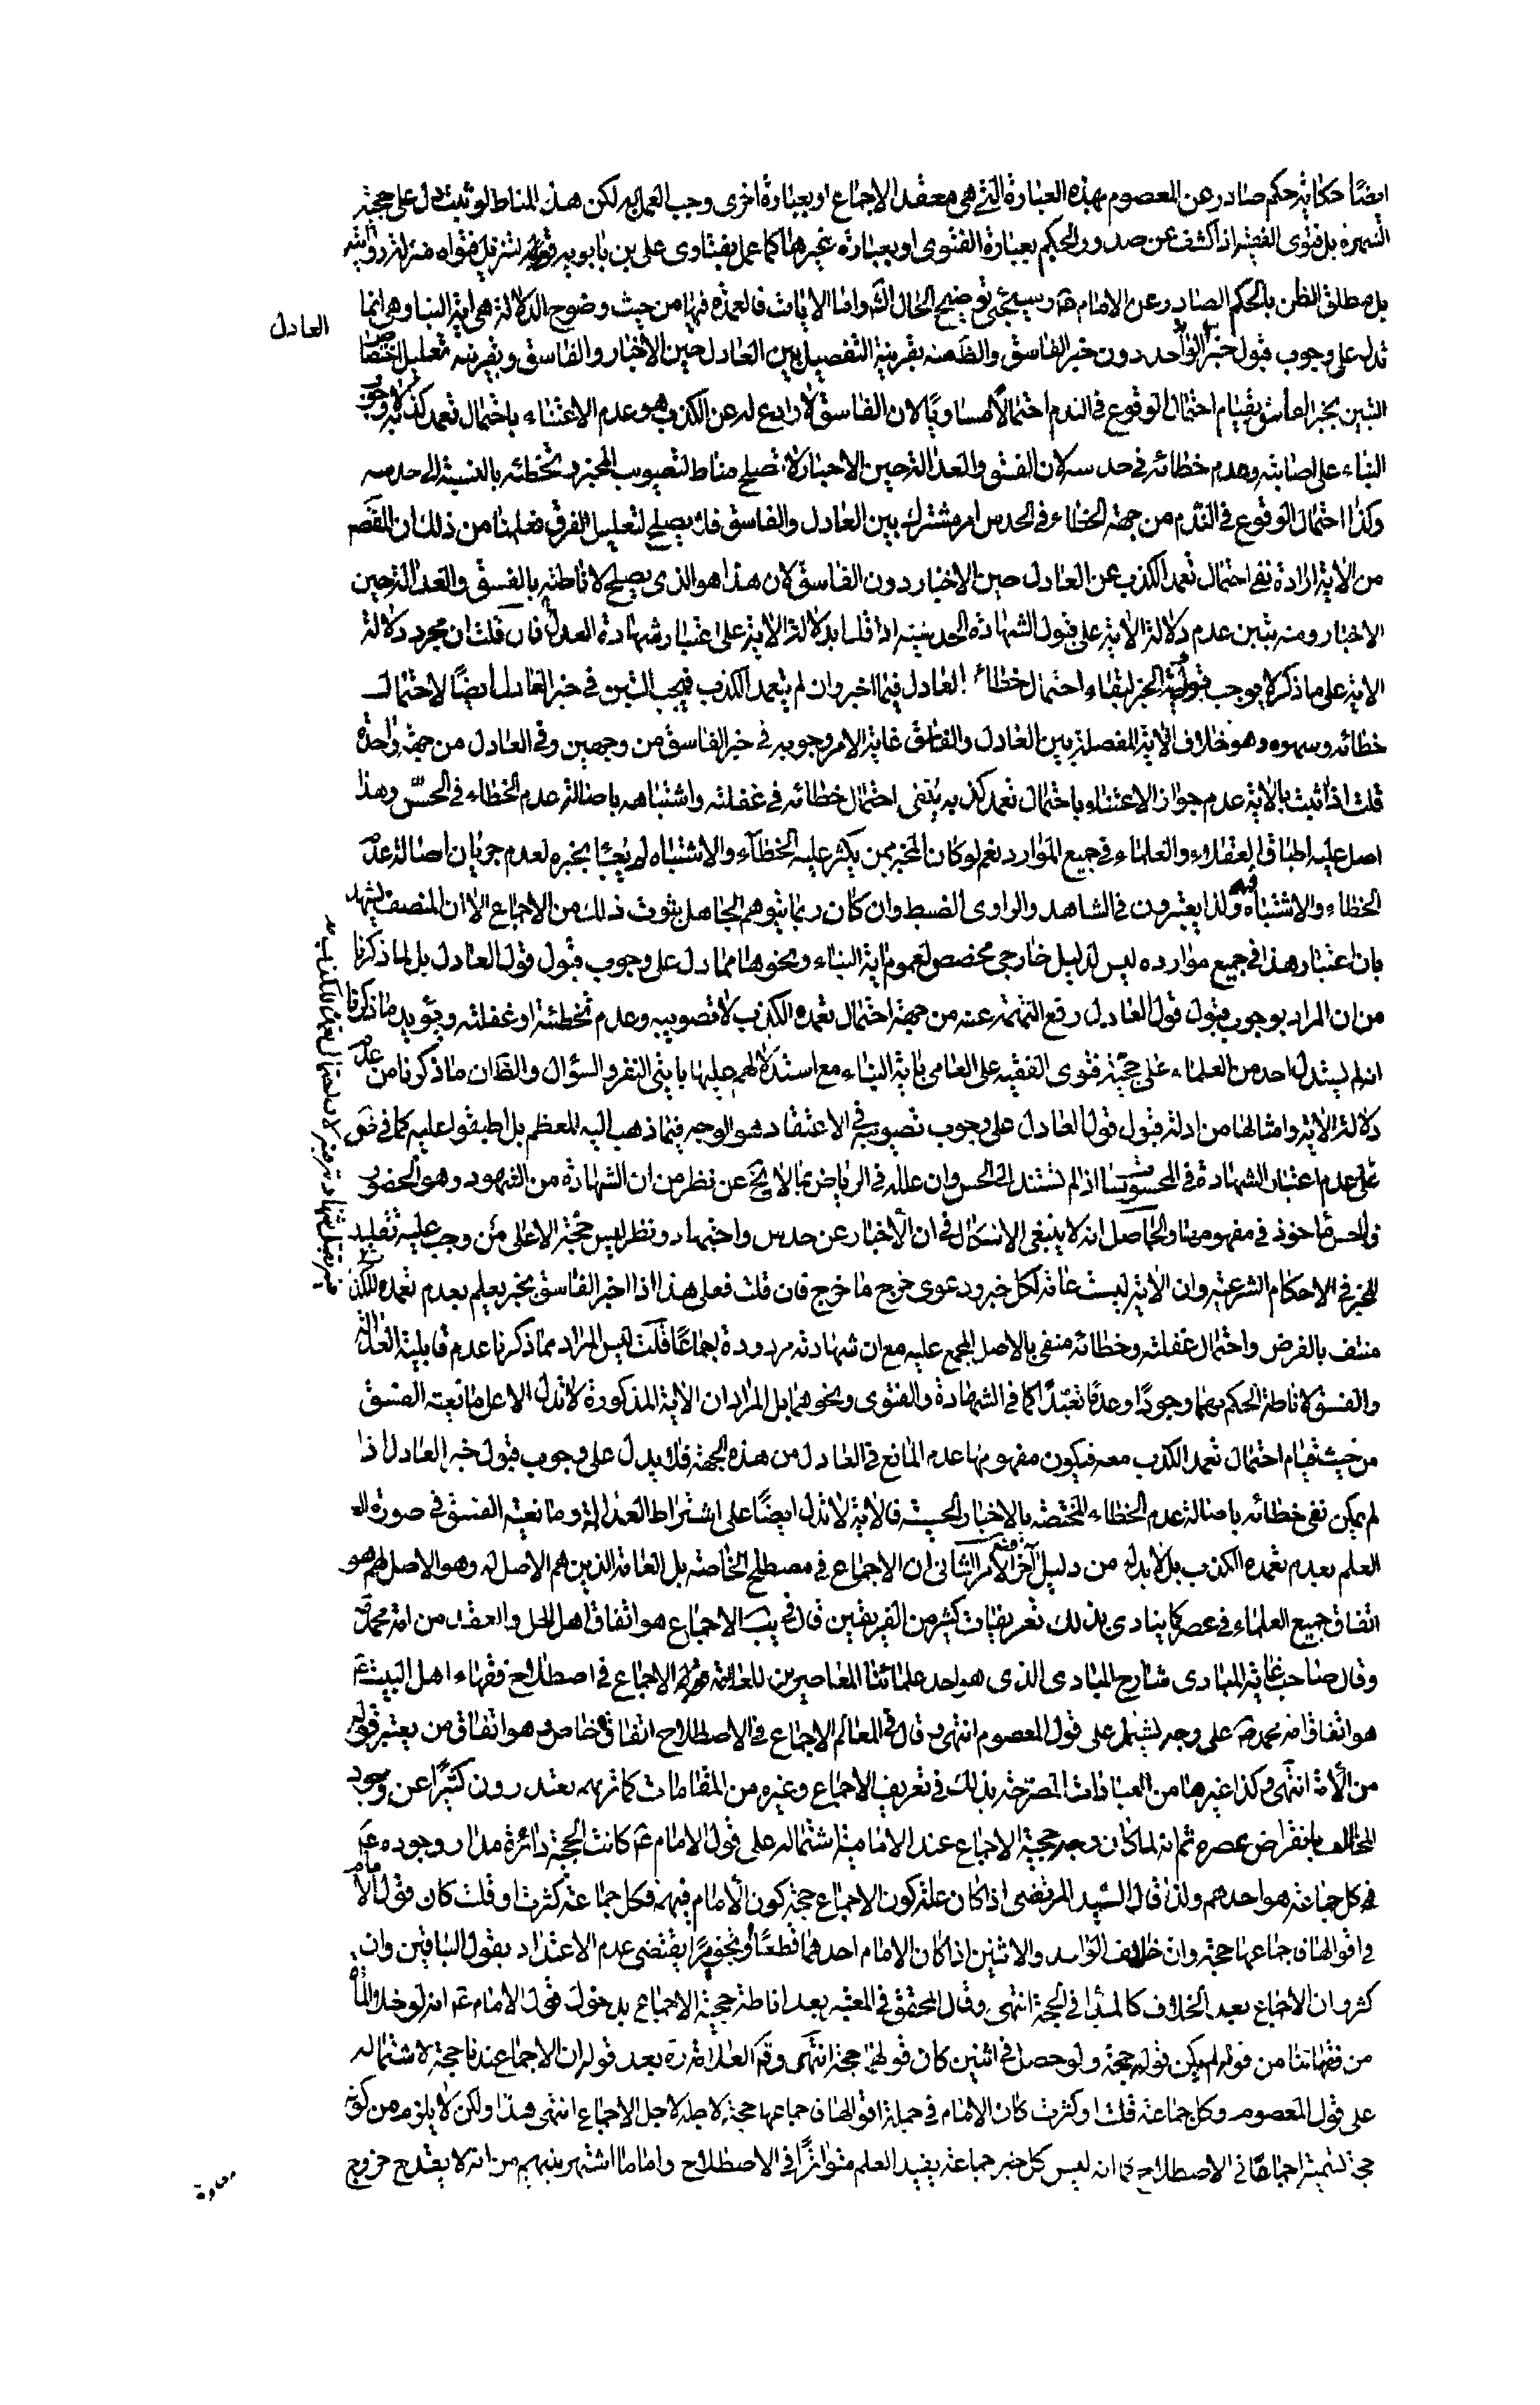 ايضا حكاية حكم صادر عن المعصوم بهذه العبارة التي هي معقد الاجماع او بعبارة اخرى وجب العمل به لكن هذا المناط لو ثبت دل على حجية
الشهرة بل فتوى الفقيه اذا كشف عن صدور الحكم بعبارة الفتوى او بعبارة غيرها كما عمل بفتاوى على بن بابويه قده لتنزيل فتواه منزلة روايته
بل مطلق الظن بالحكم الصادر عن الامام ع وسيجئ توضيح الحال انش واما الايات فالعمدة فيها من حيث وضوح الدلالة هى اية النبا وهى انما
العادل
تدل على وجوب قبول خبر الواحد دون خبر الفاسق والظ منه بقرينة التفصيل بين العادل حين الاخبار والفاسق وبقرينة تعليل اختصاص
التبين بخبر الفاسق بقيام احتمال الوقوع في الندم احتمالا مساويا لان الفاسق لا رادع له عن الكذب هو عدم الاعتناء باحتمال تعمد كذبه لا وجوب
البناء على اصابته وعدم خطائه في حدسه لان الفسق والعدالة حين الاخبار لا تصلح مناطا لتصويب المخبر وتخطئته بالنسبة الى حدسه
وكذا احتمال الوقوع في الندم من جهة الخطاء في الحدس امر مشترك بين العادل والفاسق فلا يصلح لتعليل الفرق به فعلمنا من ذلك ان المقصود
من الاية ارادة نفي احتمال تعمد الكذب عن العادل حين الاخبار دون الفاسق لان هذا هو الذى يصلح لاناطته بالفسق والعدالة حين
الاخبار ومنه يتبين عدم دلالة الاية على قبول الشهادة الحدسية اذا قلنا بدلالة الاية على اعتبار شهادة العدل فان قلت ان مجرد دلالة
الاية على ما ذكر لا يوجب قبول الخبر لبقاء احتمال خطاء العادل فيما اخبر وان لم يتعمد الكذب فيجب التبين في خبر العادل ايضا لاحتمال
خطائه وسهوه وهو خلاف الاية المفصلة بين العادل والفاسق غاية الامر وجوبه في خبر الفاسق من وجهين وفى العادل من جهة واحدة
قلت اذا ثبت بالاية عدم جواز الاعتناء باحتمال تعمد كذبه ينفى احتمال خطائه في غفلته واشتباهه باصالة عدم الخطاء في الحس وهذا
اصل عليه اطباق العقلاء والعلماء في جميع الموارد نعم لو كان المخبر ممن يكثر عليه الخطاء والاشتباه لم يعبأ بخبره لعدم جريان اصالة عدم
الخطاء والاشتباه فيه ولذا يعتبرون في الشاهد والراوى الضبط وان كان ربما يتوهم الجاهل ثبوت ذلك من الاجماع الا ان المنصف يشهد
بان اعتبار هذا في جميع موارده ليس لدليل خارجى مخصص لعموم اية النباء ونحوها مما دل على وجوب قبول قول العادل بل لما ذكرنا
من ان المراد بوجوب قبول قول العادل رفع التهمة عنه من جهة احتمال تعمده الكذب لا تصويبه وعدم تخطئته او غفلته ويؤيد ما ذكرنا
انه لم يستدل احد من العلماء على حجية فتوى الفقيه على العامى باية النباء مع استدلالهم عليها بايتى النفر والسؤال والظ ان ما ذكرنا من عدم
دلالة الاية وامثالها من ادلة قبول قول العادل على وجوب تصويبه في الاعتقاد هو الوجه فيما ذهب اليه المعظم بل اطبقوا عليه كما في ض
على عدم اعتبار الشهادة في المحسوسات اذا لم تستند الى الحس وان علله في الرياض بما لا يخ عن نظر من ان الشهادة من الشهود وهو الحضور
فالحس ماخوذ في مفهومها والحاصل انه لا ينبغى الاشكال في ان الاخبار عن حدس واجتهاد ونظر ليس حجة الا على من وجب عليه تقليد
المخبر في الاحكام الشرعية وان الاية ليست عامة لكل خبر ودعوى خرج ما خرج فان قلت فعلى هذا اذا اخبر الفاسق بخبر يعلم بعدم تعمده للكذب
فيه تقبل شهادته فيه لان احتمال تعمده للكذب
منتف بالفرض واحتمال غفلته وخطائه منفى بالاصل المجمع عليه مع ان شهادته مردودة اجماعا قلت ليس المراد مما ذكرنا عدم قابلية العدالة
والفسق لاناطة الحكم بهما وجودا وعدما تعبدا كما في الشهادة والفتوى ونحوهما بل المراد ان الاية المذكورة لا تدل الا على مانعية الفسق
من حيث قيام احتمال تعمد الكذب معه فيكون مفهومها عدم المانع في العادل من هذه الجهة فلا يدل على وجوب قبول خبر العادل اذا
لم يمكن نفى خطائه باصالة عدم الخطاء المختصة بالاخبار الحسية فالاية لا تدل ايضا على اشتراط العدالة ومانعية الفسق في صورة
العلم بعدم تعمده الكذب بل لا بد له من دليل آخر الامر الثانى ان الاجماع في مصطلح الخاصة بل العامة الذين هم الاصل له وهو الاصل لهم هو
اتفاق جميع العلماء في عصر كما ينادى بذلك تعريفات كثير من الفريقين قال في يب الاجماع هو اتفاق اهل الحل والعقد من امة محمد ص
وقال صاحب غاية المبادى شارح المبادى الذى هو احد علمائنا المعاصرين للعلامة قده الاجماع في اصطلاح فقهاء اهل البيت ع
هو اتفاق امة محمد ص على وجه يشتمل على قول المعصوم انتهى وقال في المعالم الاجماع في الاصطلاح اتفاق خاص وهو اتفاق من يعتبر قوله
من الأمة انتهى وكذا غيرها من العبارات المصرحة بذلك في تعريف الاجماع وغيره من المقامات كما تراهم يعتذرون كثيرا عن وجود
المخالف بانقراض عصره ثم انه لما كان وجه حجية الاجماع عند الامامية اشتماله على قول الامام ع كانت الحجية دائرة مدار وجوده ع
في كل جماعة هو احدهم ولذا قال السيد المرتضى اذا كان علة كون الاجماع حجة كون الامام فيهم فكل جماعة كثرت او قلت كان قول الامام
في اقوالها فاجماعها حجة وان خلاف الواحد والاثنين اذا كان الامام احدهما قطعا او تجويزا يقتضى عدم الاعتداد بقول الباقين وان
كثروا وان الاجماع بعد الخلاف كالمبتدا في الحجية انتهى وقال المحقق في المعتبر بعد اناطة حجية الاجماع بدخول قول الامام ع انه لو خلا المأة
من فقهائنا من قوله لم يكن قولهم حجة ولو حصل في اثنين كان قولهما حجة انتهى وقال العلامة ره بعد قوله ان الاجماع عندنا حجة لاشتماله
على قول المعصوم وكل جماعة قلت او كثرت كان الامام في جملة اقوالها فاجماعها حجة لاجله لا لاجل الاجماع انتهى هذا ولكن لا يلزم من كونه
حجة تسميته اجماعا في الاصطلاح كما انه ليس كل خبر جماعة يفيد العلم متواترا في الاصطلاح واما ما اشتهر بينهم من انه لا يقدح خروج
معلوم